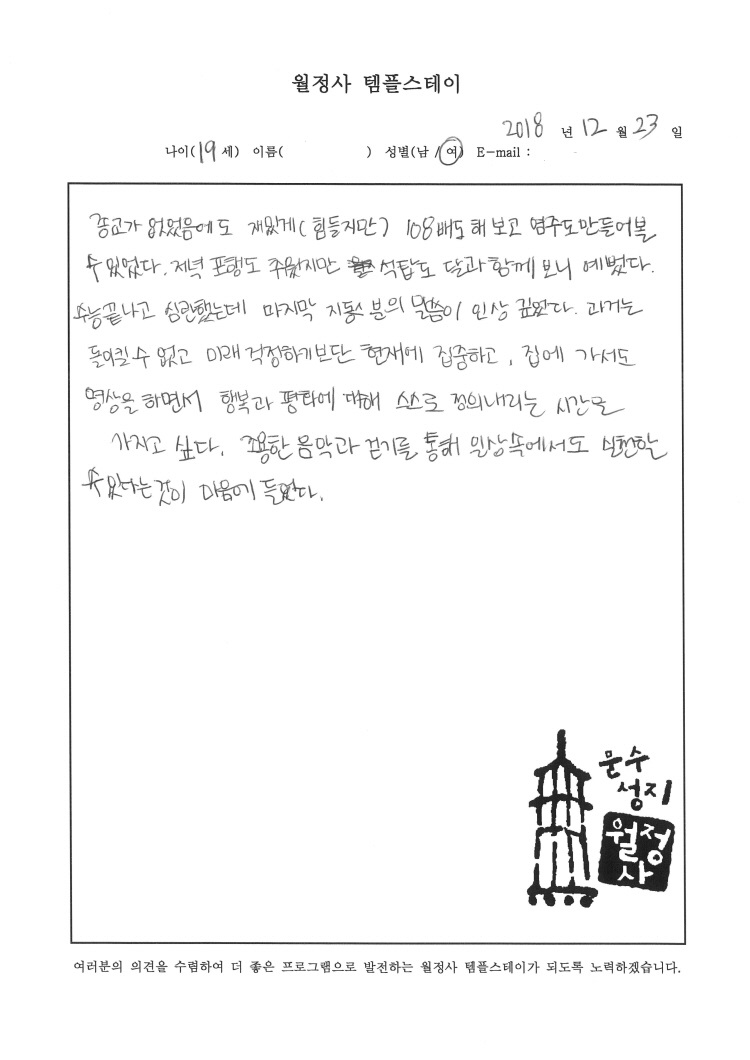 월정사 템플스테이
2018 년 12 월 23 일
나이(19세) 이름( ) 성별(남/여) E-mail :
종교가 없었음에도 재밌게(힘들지만) 108배도 해 보고 염주도 만들어볼
수 있었다. 저녁 포행도 추웠지만 석탑도 달과 함께 보니 예뻤다.
수능끝나고 심란했는데 마지막 지동스님 분의 말씀이 인상 깊었다. 과거는
돌이킬 수 없고 미래 걱정하기보단 현재에 집중하고, 집에 가서도
명상을 하면서 행복과 평화에 대해 스스로 정의내리는 시간을
가지고 싶다. 조용한 음악과 걷기를 통해 일상속에서도 실천할
수 있다는 것이 마음에 들었다.
문수
성지
월정
사
여러분의 의견을 수렴하여 더 좋은 프로그램으로 발전하는 월정사 템플스테이가 되도록 노력하겠습니다.